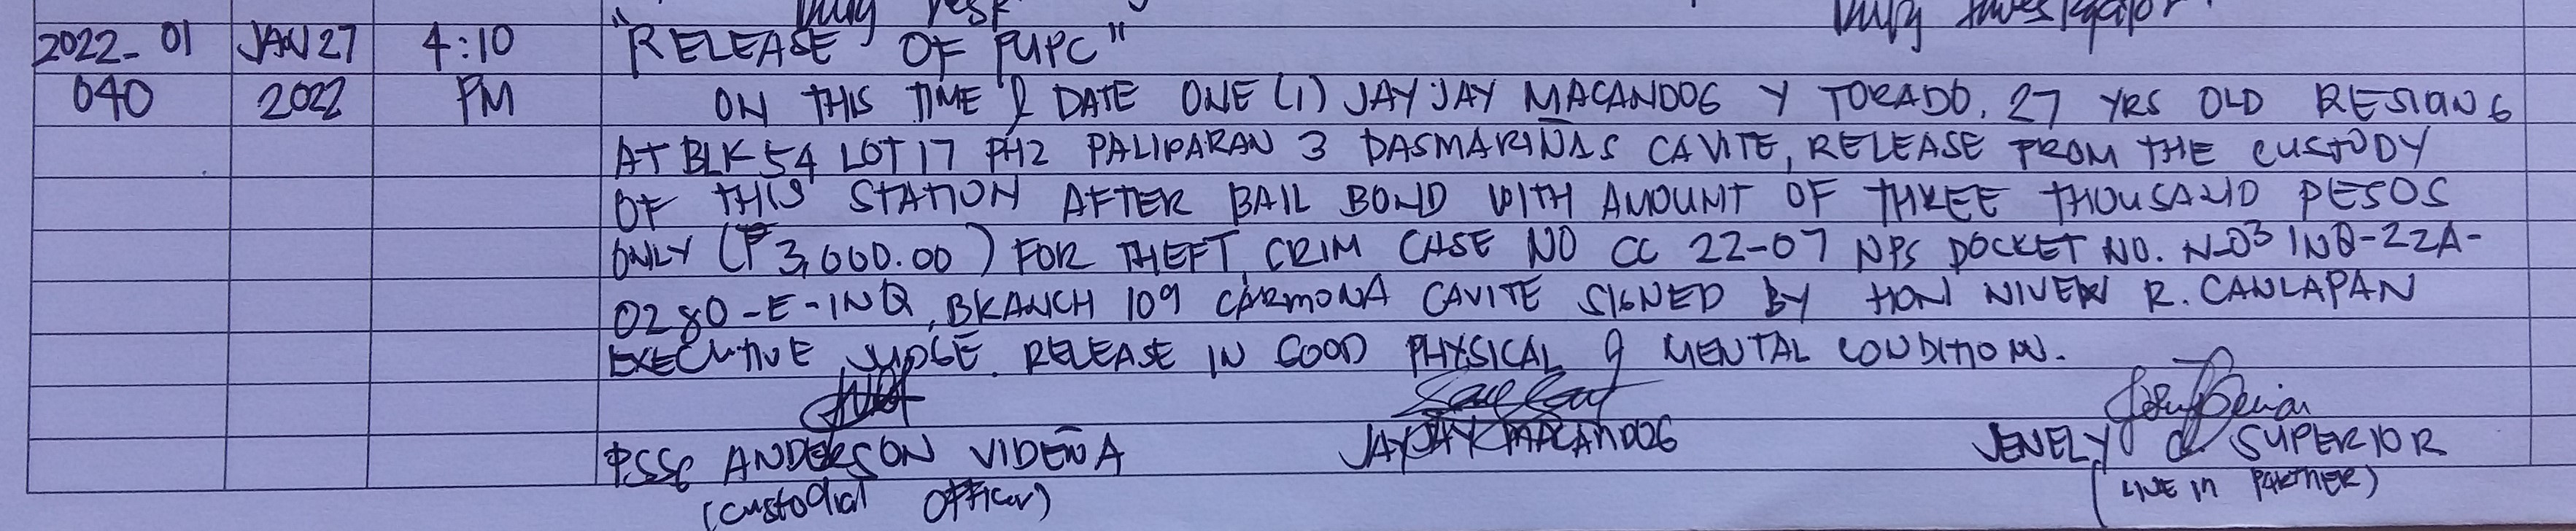 Duty Desk Duty Investigator
2022-01 JAN 27 4:10 "RELEASE OF PUPC"
040 2022 PM ON THIS TIME & DATE ONE (1) JAYJAY MACANDOG Y TORADO, 27 YRS OLD RESIDING
AT BLK 54 LOT 17 PH2 PALIPARAN 3 DASMARIÑAS CAVITE, RELEASE FROM THE CUSTODY
OF THIS STATION AFTER BAIL BOND WITH AMOUNT OF THREE THOUSAND PESOS
ONLY (₱3,000.00) FOR THEFT, CRIM CASE NO CC 22-07 NPS DOCKET NO. N-03 INQ-22A-
0280-E-INQ, BRANCH 109 CARMONA CAVITE SIGNED BY HON NIVEN R. CANLAPAN
EXECUTIVE JUDGE. RELEASE IN GOOD PHYSICAL & MENTAL CONDITION.
PSSg ANDERSON VIDEÑA JAYJAY MACANDOG JENELY SUPERIOR
(Custodial Officer) (LIVE IN PARTNER)